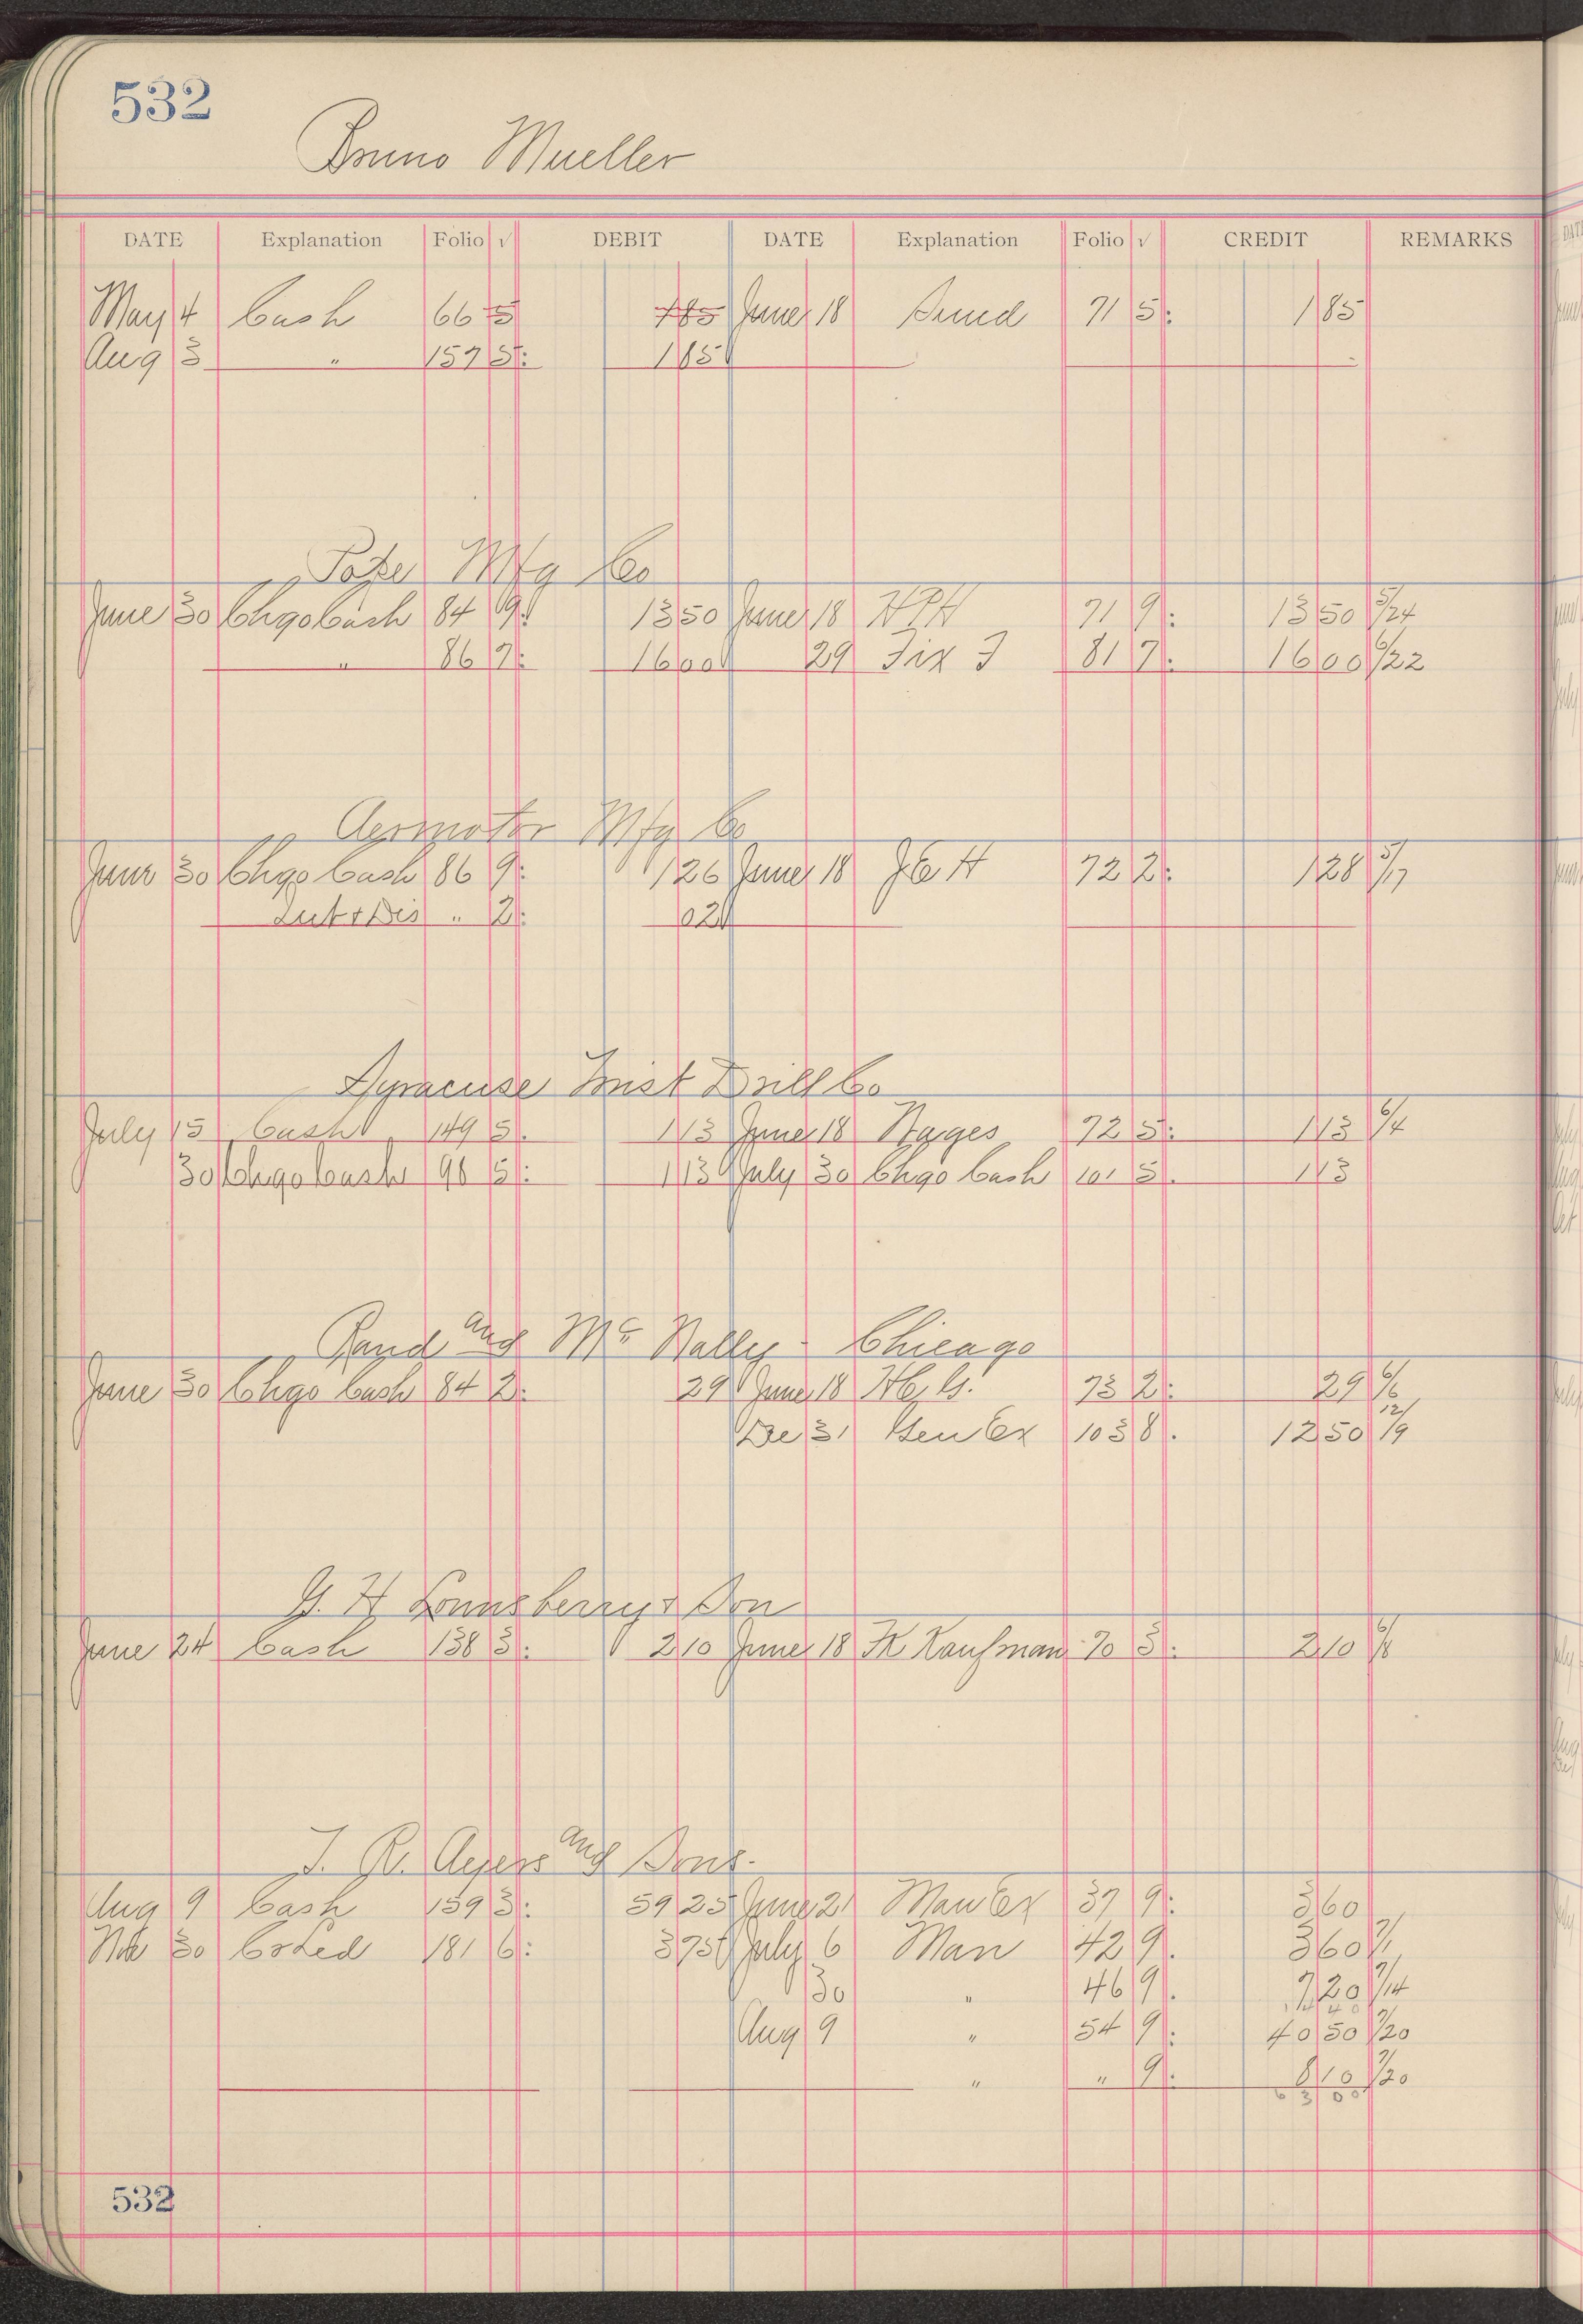 532
Bruno Mueller
DATE Explanation Folio √ DEBIT DATE Explanation Folio √ CREDIT REMARKS
May 4 Cash 66 5 185 June 18 Sund 71 5 1 85
Aug 3 " 157 5 1 85
Pope Mfg Co
June 30 Chgo Cash 84 9 13 50 June 18 HPH 71 9 13 50 5/24
" 86 7 16 00 29 Fix J 81 7 16 00 6/22
Aermotor Mfg Co
June 30 Chgo Cash 86 9 1 26 June 18 72 2 1 28 5/17
Int & Dis " 2 02
Syracuse Twist Drill Co
July 15 Cash 149 5 1 13 June 18 Wages 72 5 1 13 6/4
30 Chgo Cash 96 5 1 13 July 30 Chgo Cash 101 5 1 13
Rand and McNally - Chicago
June 30 Chgo Cash 84 2 29 June 18 73 2 29 6/6
De 31 Gen Ex 103 8 12 50 12/19
G. H Lounsberry & Son
June 24 Cash 138 3 2 10 June 18 K Kaufman 70 3 2 10 6/8
J. R. Ayers and Sons.
Aug 9 Cash 159 3 59 25 June 21 Man Ex 37 9 3 60
Nov 30 181 6 3 75 July 6 Man 42 9 3 60 7/1
30 " 46 9 7 20 7/14
Aug 9 " 54 9 40 50 7/20
" " 9 8 10 7/20
63 00
532